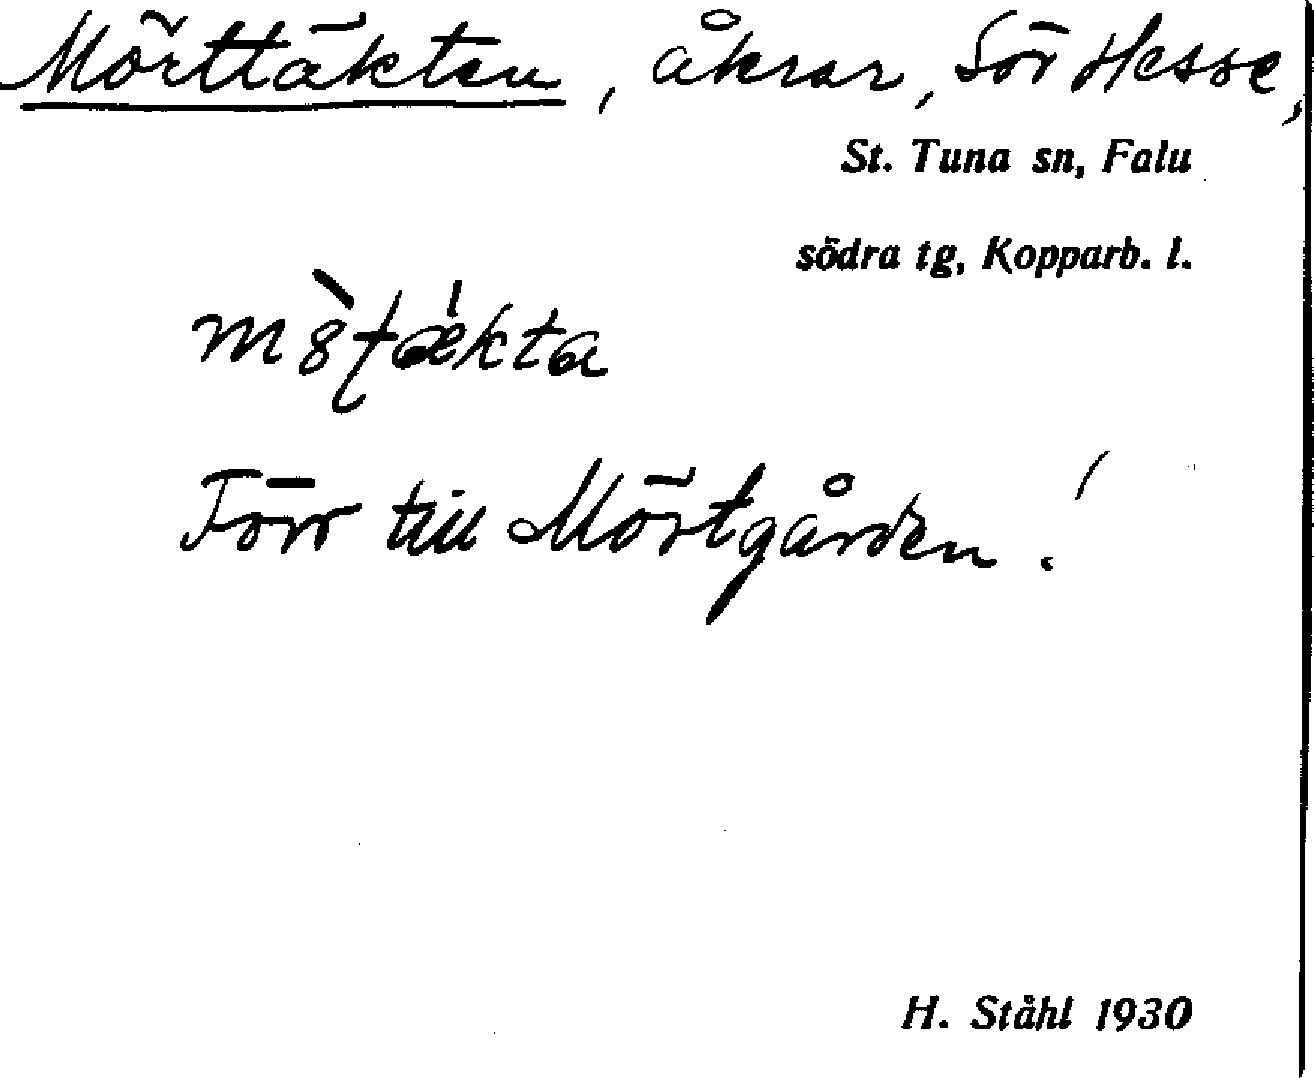 Mörttäkten, åkrar, Sör Hesse,
St. Tuna sn, Falu
södra tg, Kopparb. l.
Förr till Mörtgården!
H. Ståhl 1930